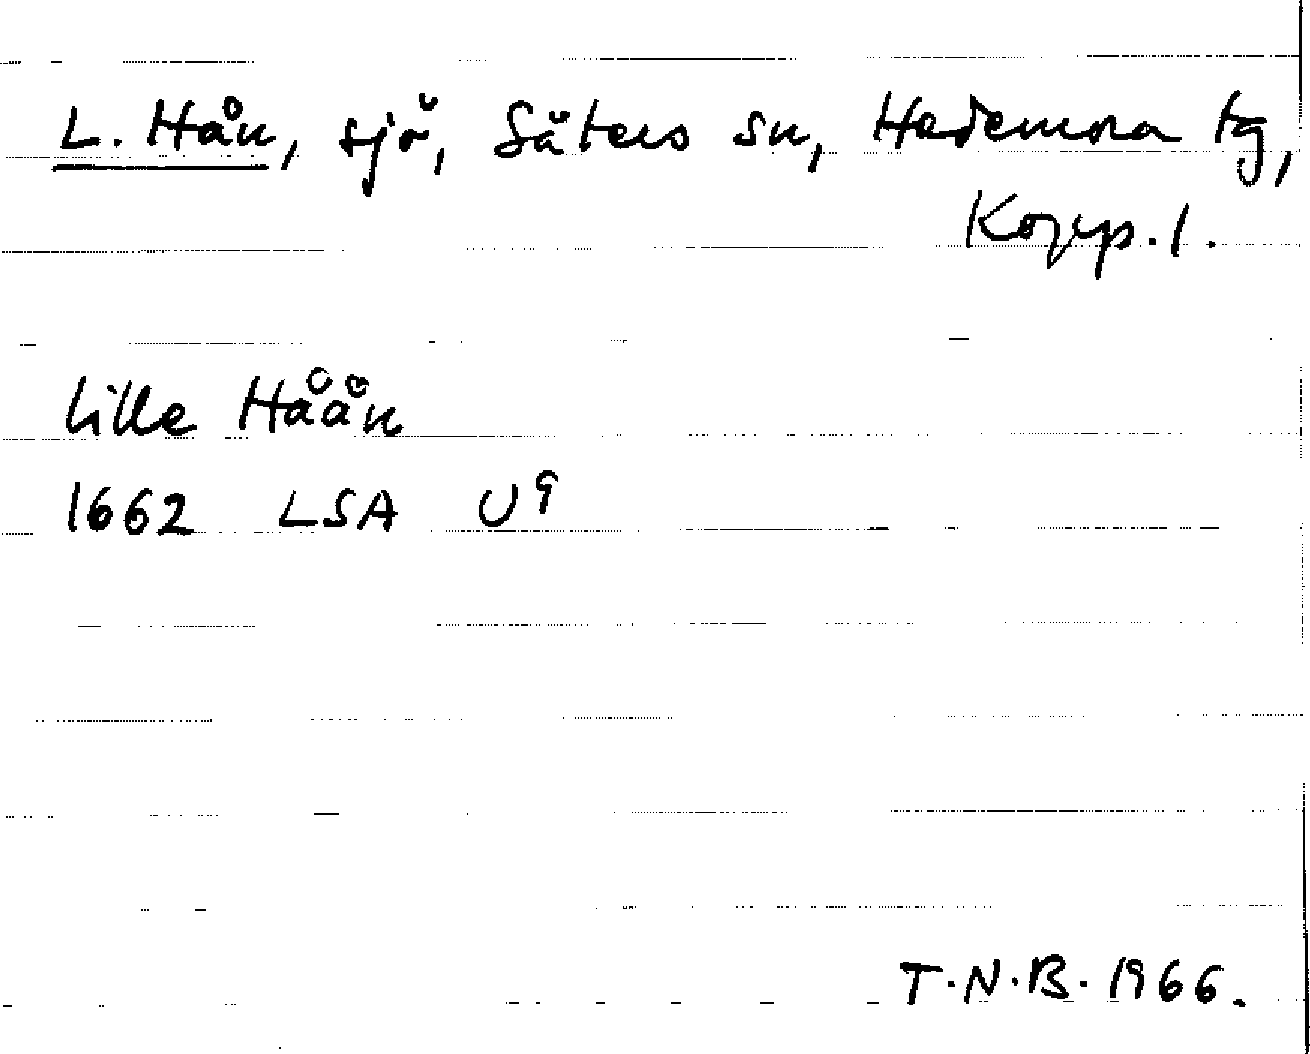 L. Hån, sjö, Säters sn, Hedemora tg,
Kopp. l.
Lille Håån
1662 LSA U9
T.N.B. 1966.